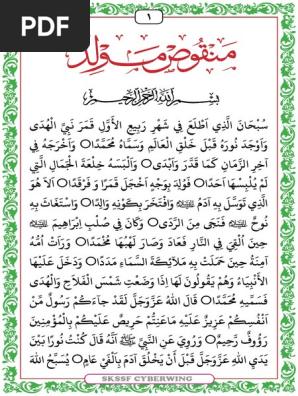 PDF
١
منقوص مولد
بسم الله الرحمن الرحيم
سُبْحَانَ الَّذِي أَطْلَعَ فِي شَهْرِ رَبِيعِ الْأَوَّلِ قَمَرَ نَبِيِّ الْهُدَى
وَأَوْجَدَ نُورَهُ قَبْلَ خَلْقِ الْعَالَمِ وَسَمَّاهُ مُحَمَّدًا ۝ وَأَخْرَجَهُ فِي
آخِرِ الزَّمَانِ كَمَا قَدَّرَ وَأَبْدَى ۝ وَأَلْبَسَهُ خِلْعَةَ الْجَمَالِ الَّتِي
لَمْ يُلْبِسْهَا أَحَدًا ۝ فَوُلِدَ بِوَجْهٍ أَخْجَلَ قَمَرًا وَفَرْقَدًا ۝ أَلَا هُوَ
الَّذِي تَوَسَّلَ بِهِ آدَمُ ﷺ وَافْتَخَرَ بِكَوْنِهِ وَالِدًا ۝ وَاسْتَغَاثَ بِهِ
نُوحٌ ﷺ فَنَجَى مِنَ الرَّدَى ۝ وَكَانَ فِي صُلْبِ إِبْرَاهِيمَ ﷺ
حِينَ أُلْقِيَ فِي النَّارِ فَعَادَ وَصَارَ لَهَبُهَا مُخْمَدًا ۝ وَرَأَتْ أُمُّهُ
آمِنَةُ حِينَ حَمَلَتْ بِهِ مَلَائِكَةَ السَّمَاءِ مَدَدًا ۝ وَدَخَلَ عَلَيْهَا
الْأَنْبِيَاءُ وَهُمْ يَقُولُونَ لَهَا إِذَا وَضَعْتِ شَمْسَ الْفَلَاحِ وَالْهُدَى
فَسَمِّيهِ مُحَمَّدًا ۝ قَالَ اللهُ عَزَّ وَجَلَّ لَقَدْ جَاءَكُمْ رَسُولٌ مِّنْ
أَنْفُسِكُمْ عَزِيزٌ عَلَيْهِ مَاعَنِتُّمْ حَرِيصٌ عَلَيْكُمْ بِالْمُؤْمِنِينَ
رَؤُوفٌ رَّحِيمٌ ۝ وَرُوِيَ عَنِ النَّبِيِّ ﷺ أَنَّهُ قَالَ كُنْتُ نُورًا بَيْنَ
يَدَيِ اللهِ عَزَّ وَجَلَّ قَبْلَ أَنْ يَخْلُقَ آدَمَ بِأَلْفَيْ عَامٍ ۝ يُسَبِّحُ اللهَ
SKSSF CYBERWING